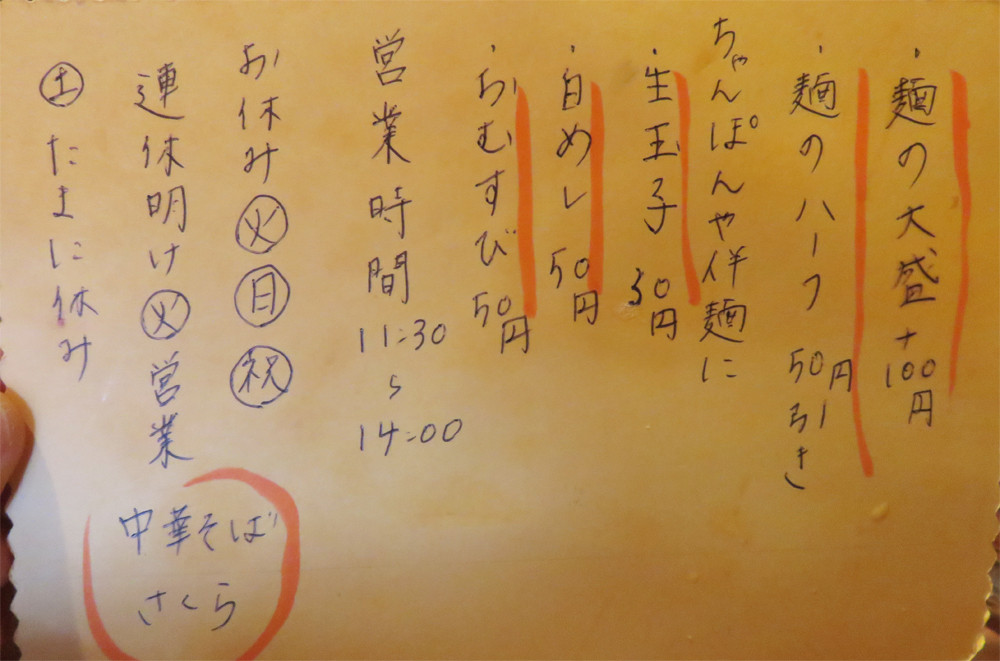 ・麺の大盛+100円
・麺のハーフ 50円引き
ちゃんぽんや伴麺に
・生玉子 30円
・白めし 50円
・おむすび 50円
営業時間 11:30〜14:00
お休み㊋㊐㊗
連休明け㊋営業
㊏たまに休み
中華そば
さくら